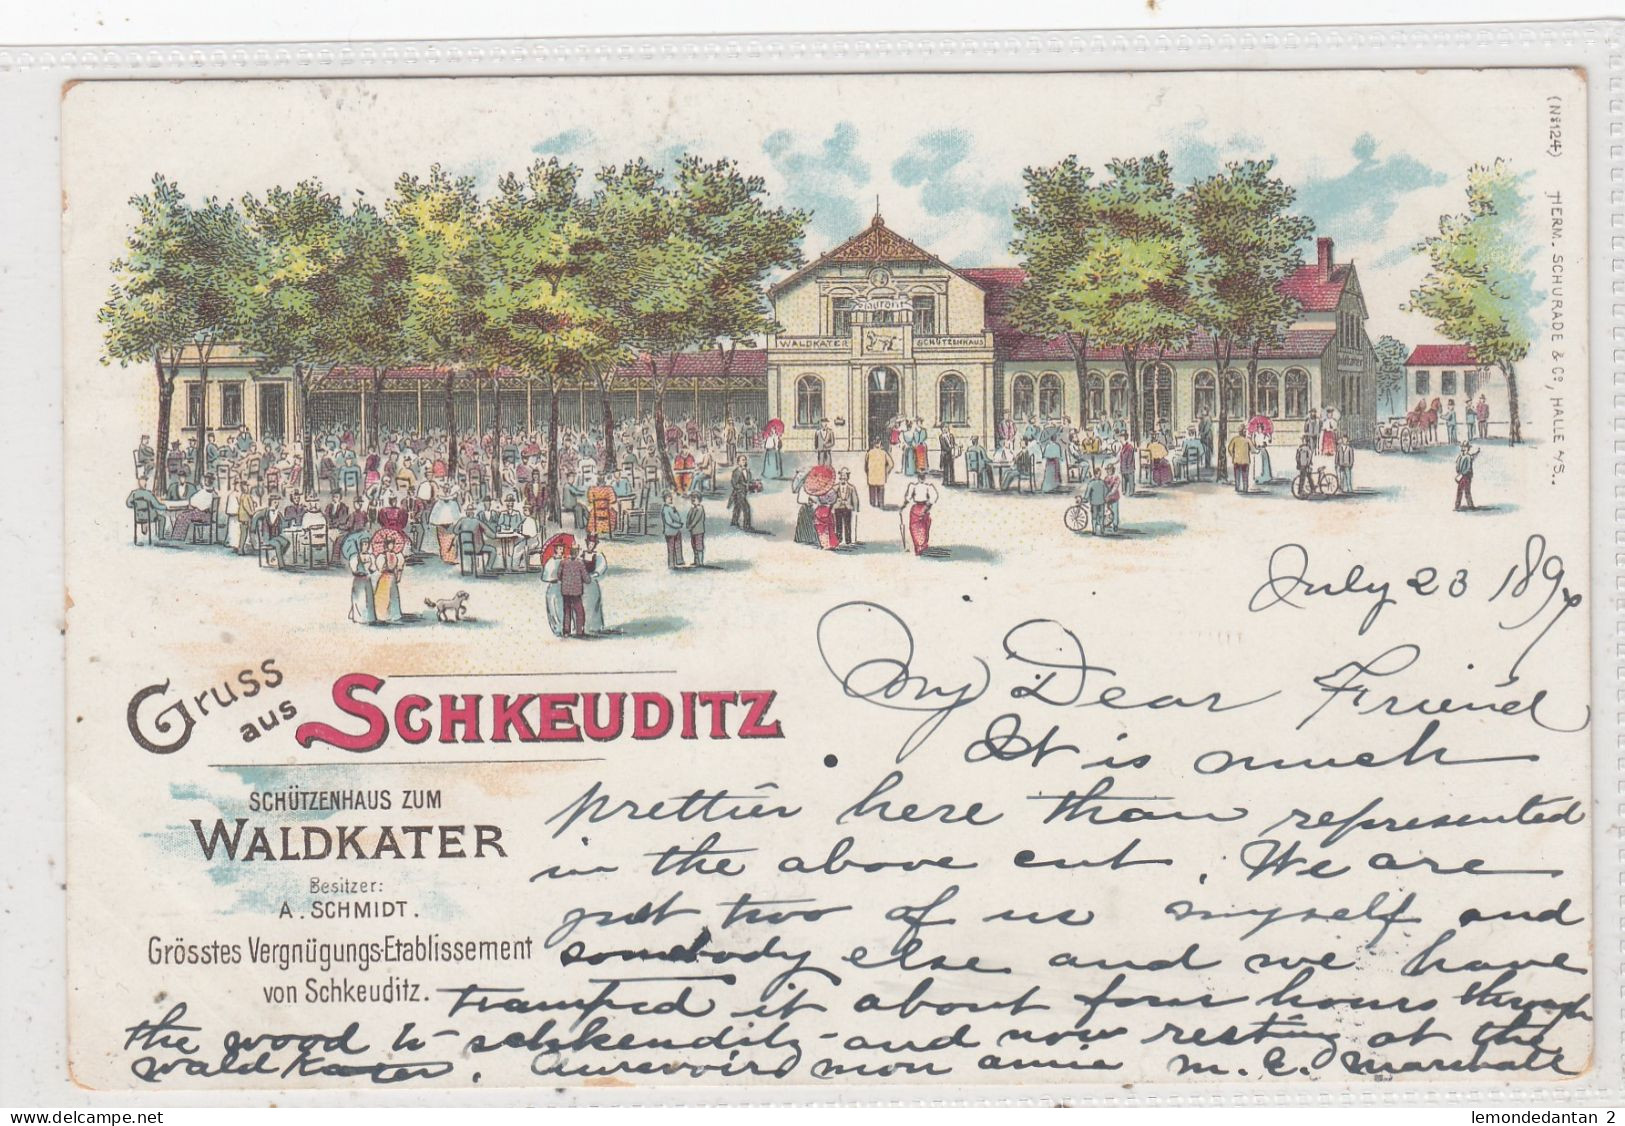 (No 124) HERM. SCHURADE & Co, HALLE a/S.
WALDKATER SCHÜTZENHAUS
Gruss
aus
SCHKEUDITZ
SCHÜTZENHAUS ZUM
WALDKATER
Besitzer:
A. SCHMIDT.
Grösstes Vergnügungs-Etablissement
von Schkeuditz.
July 23 189
My Dear Friend
It is much
prettier here than represented
in the above cut. We are
just two of us myself and
somebody else and we have
tramped it about four hours through
the wood to Schkeuditz - and now resting at the
Waldkater. Aurevoir mon amie M. E. Marshall
lemondedantan 2